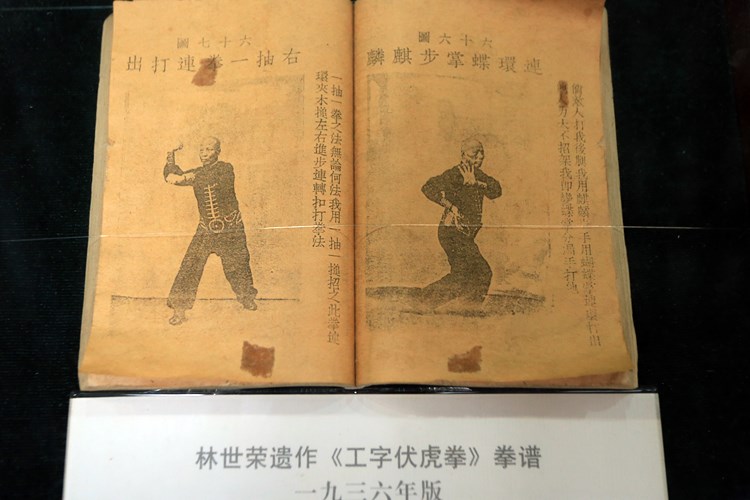 六十六圖
連環蝶掌步麒麟
人打我後腿我用麒麟步用蝴蝶掌連環打出
力大不招架我即蝶
六十七圖
右抽一拳連打出
一抽一拳之法無論何法我用一抽一搥招之此拳
環夾木搥左右進步連轉扣打拳法
林世荣遗作《工字伏虎拳》拳谱
一九三六年版